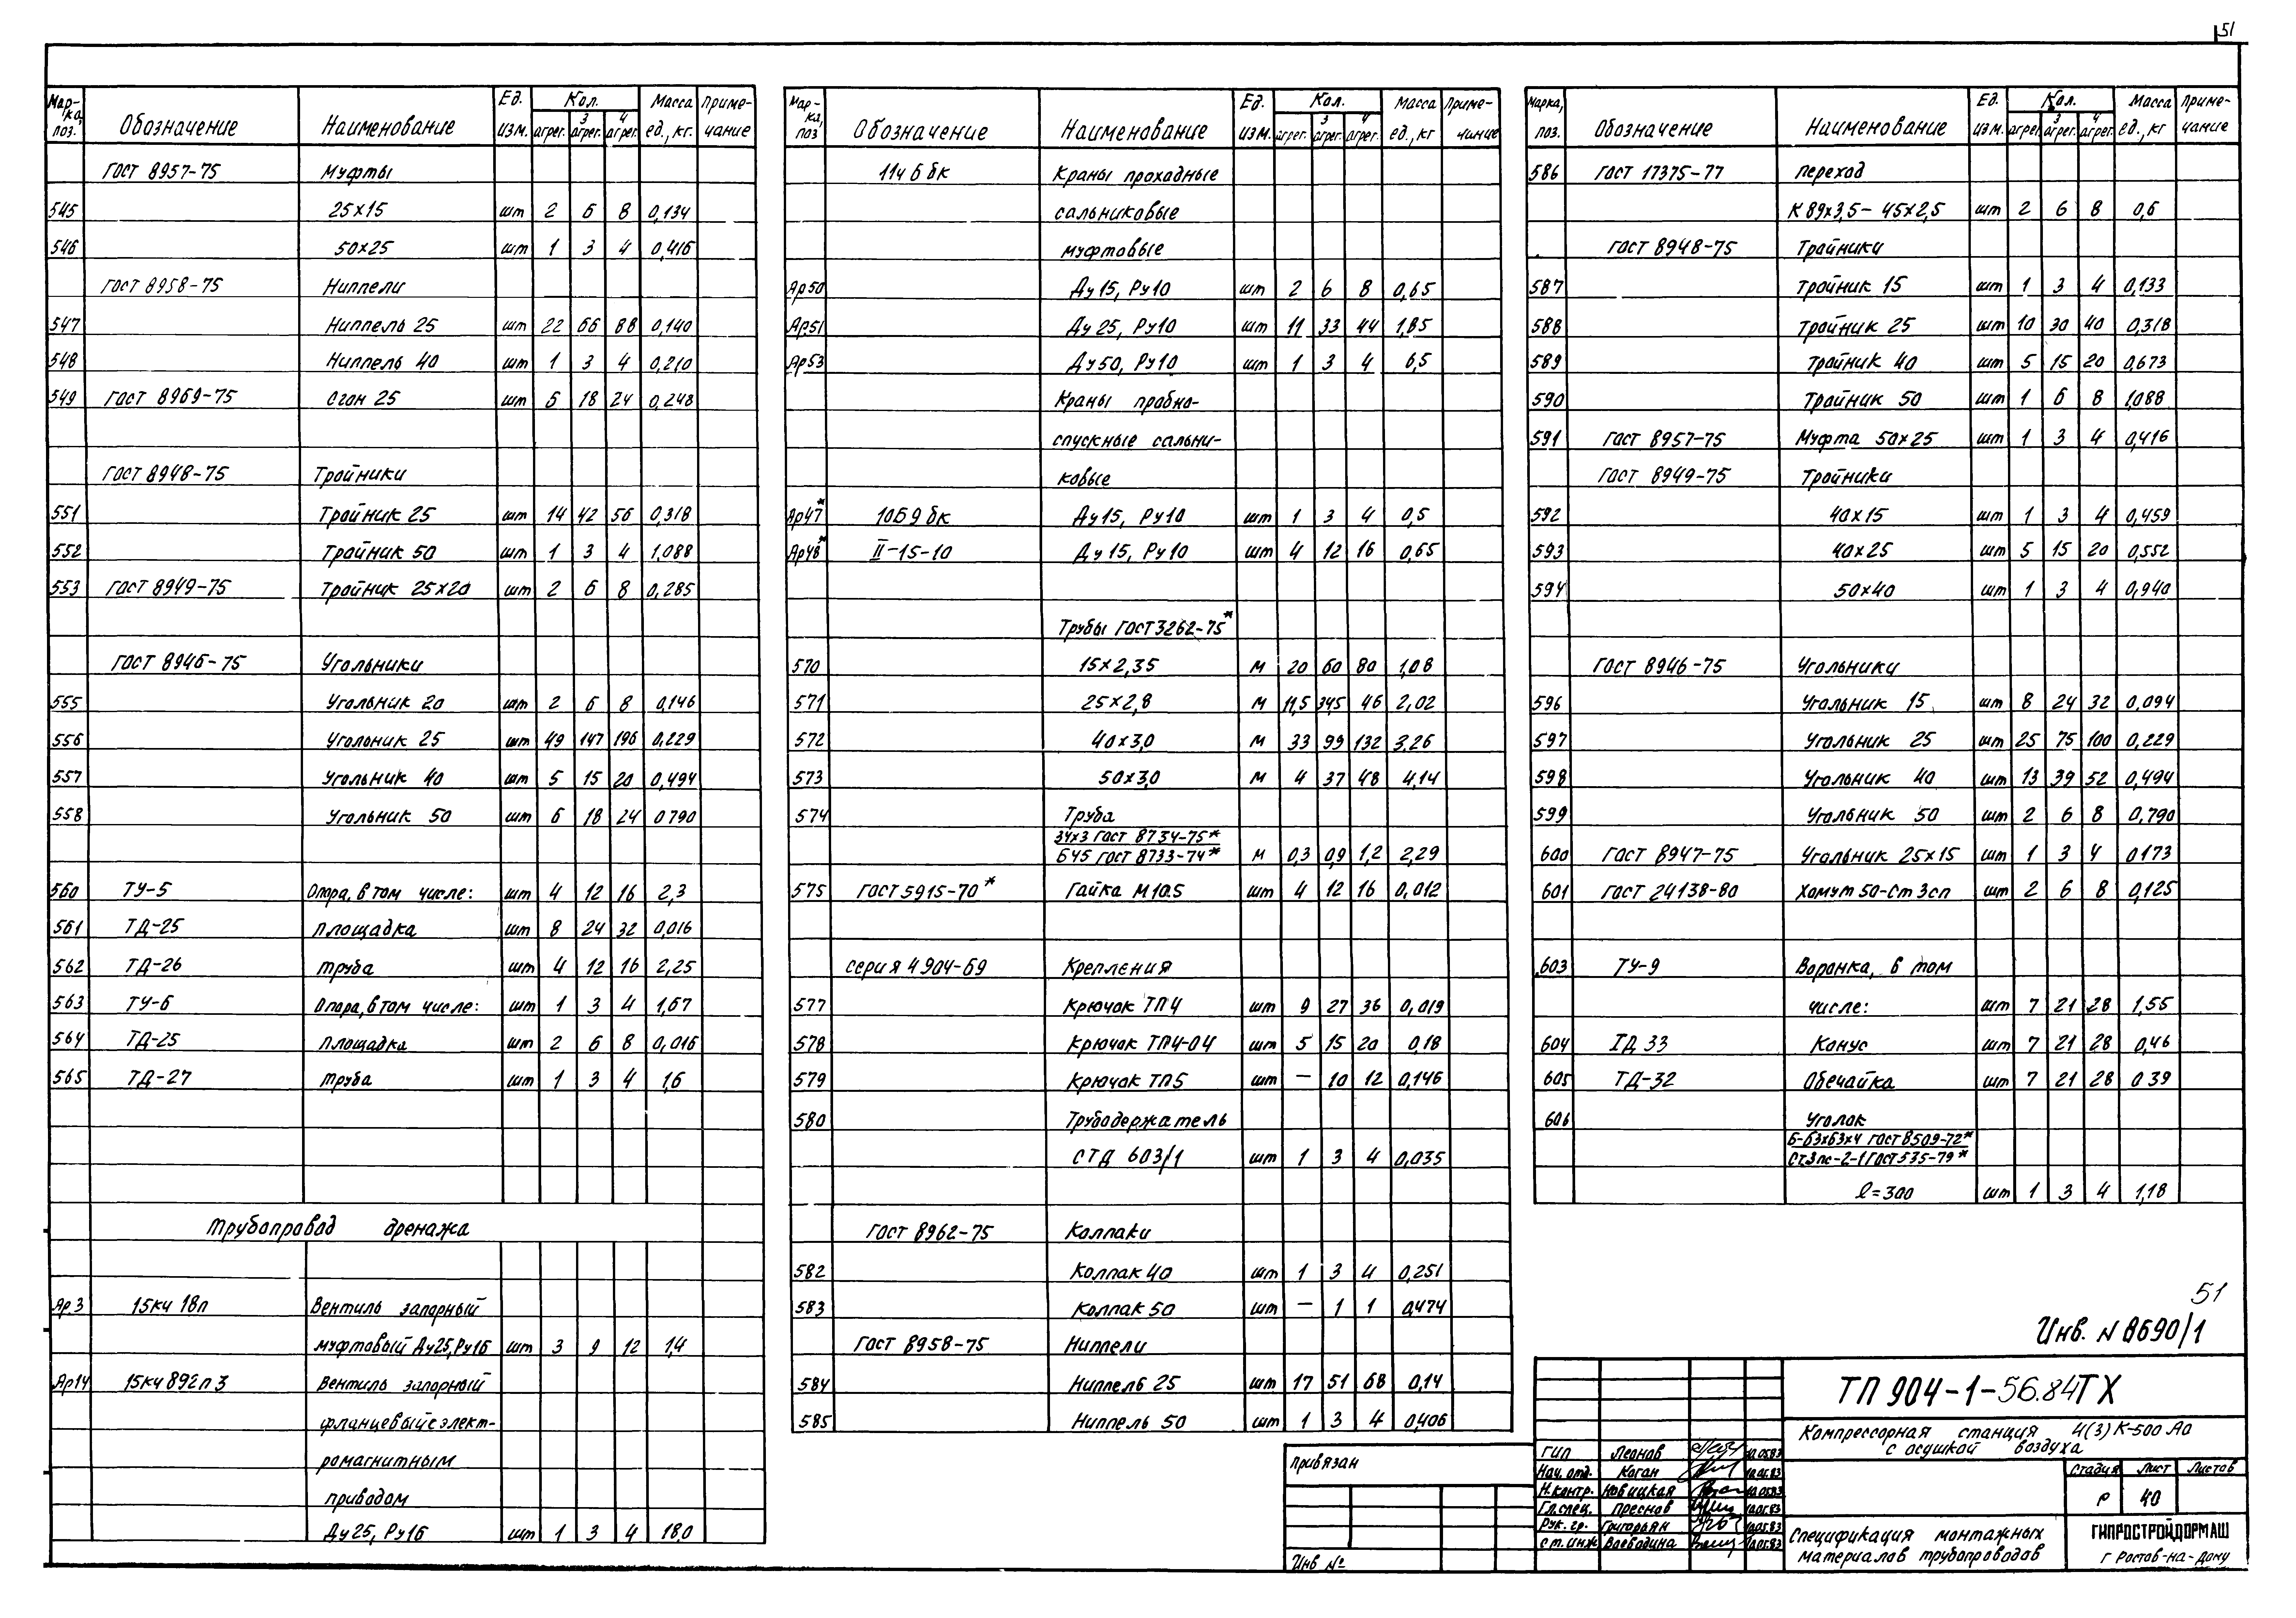 51
Марка, поз. Обозначение Наименование Ед. изм. Кол. агрег. 3 агрег. 4 агрег. Масса ед., кг. Примечание
ГОСТ 8957-75 Муфты
545 25х15 шт 2 6 8 0,134
546 50х25 шт 1 3 4 0,416
ГОСТ 8958-75 Ниппели
547 Ниппель 25 шт 22 66 88 0,140
548 Ниппель 40 шт 1 3 4 0,210
549 ГОСТ 8969-75 Сгон 25 шт 6 18 24 0,248
ГОСТ 8948-75 Тройники
551 Тройник 25 шт 14 42 56 0,318
552 Тройник 50 шт 1 3 4 1,088
553 ГОСТ 8949-75 Тройник 25х20 шт 2 6 8 0,285
ГОСТ 8946-75 Угольники
555 Угольник 20 шт 2 6 8 0,146
556 Угольник 25 шт 49 147 196 0,229
557 Угольник 40 шт 5 15 20 0,494
558 Угольник 50 шт 6 18 24 0790
560 ТУ-5 Опора, в том числе: шт 4 12 16 2,3
561 ТД-25 Площадка шт 8 24 32 0,016
562 ТД-26 Труба шт 4 12 16 2,25
563 ТУ-6 Опора, в том числе: шт 1 3 4 1,67
564 ТД-25 Площадка шт 2 6 8 0,016
565 ТД-27 Труба шт 1 3 4 1,6
Трубопровод дренажа
Ар3 15кч 18п Вентиль запорный
муфтовый Ду25, Ру16 шт 3 9 12 1,4
Ар14 15кч 892п3 Вентиль запорный
фланцевый с элект-
ромагнитным
приводом
Ду25, Ру16 шт 1 3 4 18,0
Марка, поз Обозначение Наименование Ед. изм. Кол. агрег. 3 агрег. 4 агрег. Масса ед., кг Примечание
11ч 6 бк Краны проходные
сальниковые
муфтовые
Ар50 Ду15, Ру10 шт 2 6 8 0,65
Ар51 Ду25, Ру10 шт 11 33 44 1,85
Ар53 Ду50, Ру10 шт 1 3 4 6,5
Краны пробно-
спускные сальни-
ковые
Ар47* 10Б9бк Ду15, Ру10 шт 1 3 4 0,5
Ар48* II-15-10 Ду15, Ру10 шт 4 12 16 0,65
Трубы ГОСТ 3262-75*
570 15х2,35 м 20 60 80 1,08
571 25х2,8 м 11,5 34,5 46 2,02
572 40х3,0 м 33 99 132 3,26
573 50х3,0 м 4 37 48 4,14
574 Труба
34х3 ГОСТ 8734-75*
Б45 ГОСТ 8733-74* м 0,3 0,9 1,2 2,29
575 ГОСТ 5915-70* Гайка М10.5 шт 4 12 16 0,012
серия 4 904-69 Крепления
577 Крючок ТП4 шт 9 27 36 0,019
578 Крючок ТП4-04 шт 5 15 20 0,18
579 Крючок ТП5 шт — 10 12 0,146
580 Трубодержатель
СТД 603/1 шт 1 3 4 0,035
ГОСТ 8962-75 Колпаки
582 Колпак 40 шт 1 3 4 0,251
583 Колпак 50 шт — 1 1 0,474
ГОСТ 8958-75 Ниппели
584 Ниппель 25 шт 17 51 68 0,14
585 Ниппель 50 шт 1 3 4 0,406
Марка, поз. Обозначение Наименование Ед. изм. Кол. агрег. 3 агрег. 4 агрег. Масса ед., кг Примечание
586 ГОСТ 17375-77 Переход
К 89х3,5-45х2,5 шт 2 6 8 0,6
ГОСТ 8948-75 Тройники
587 Тройник 15 шт 1 3 4 0,133
588 Тройник 25 шт 10 30 40 0,318
589 Тройник 40 шт 5 15 20 0,673
590 Тройник 50 шт 1 6 8 1,088
591 ГОСТ 8957-75 Муфта 50х25 шт 1 3 4 0,416
ГОСТ 8949-75 Тройники
592 40х15 шт 1 3 4 0,459
593 40х25 шт 5 15 20 0,552
594 50х40 шт 1 3 4 0,940
ГОСТ 8946-75 Угольники
596 Угольник 15 шт 8 24 32 0,094
597 Угольник 25 шт 25 75 100 0,229
598 Угольник 40 шт 13 39 52 0,494
599 Угольник 50 шт 2 6 8 0,790
600 ГОСТ 8947-75 Угольник 25х15 шт 1 3 4 0173
601 ГОСТ 24138-80 Хомут 50-Ст 3сп шт 2 6 8 0,125
603 ТУ-9 Воронка, в том
числе: шт 7 21 28 1,55
604 ТД 33 Конус шт 7 21 28 0,46
605 ТД-32 Обечайка шт 7 21 28 0 39
606 Уголок
Б-63х63х4 ГОСТ 8509-72*
Ст3пс-2-1 ГОСТ 535-79*
ℓ=300 шт 1 3 4 1,18
51
Инв. N 8690/1
ТП 904-1-56.84 ТХ
Компрессорная станция 4(3) К-500 АО
с осушкой воздуха
Привязан
Инв №
ГИП Леонов 10.05.83
Нач. отд. Коган 10.05.83
Н.контр. Новицкая 10.05.83
Гл.спец. Преснов 10.05.83
Рук. гр. Григорьян 10.05.83
Ст.инж Воеводина 10.05.83
Стадия Лист Листов
Р 40
Спецификация монтажных
материалов трубопроводов
ГИПРОСТРОЙДОРМАШ
г Ростов-на-Дону